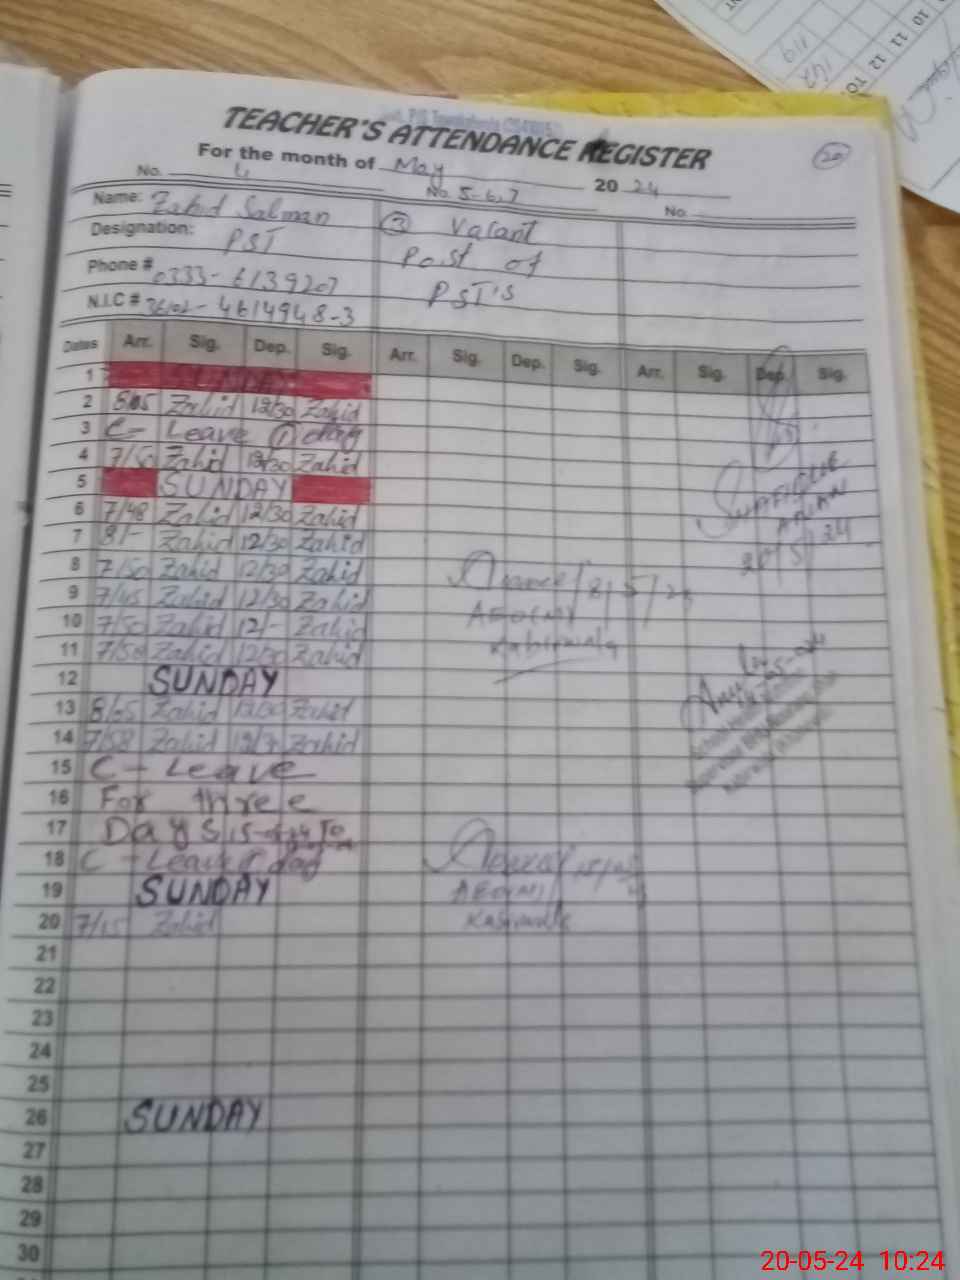 TEACHER'S ATTENDANCE REGISTER
20
For the month of May 2024
No. 4 No. 5-6,7 No.
Name: Zahid Salman
3 Vacant
Designation: PST
Post of
Phone # 0333-6139207
PST'S
N.I.C # 36102-4614948-3
Dates Arr. Sig. Dep. Sig. Arr. Sig. Dep. Sig. Arr. Sig. Dep. Sig.
1 SUNDAY
2 8/05 Zahid 12/30 Zahid
3 C- Leave 1 day
4 7/50 Zahid 12/30 Zahid
5 SUNDAY
6 7/48 Zahid 12/30 Zahid
7 8/- Zahid 12/30 Zahid
8 7/50 Zahid 12/30 Zahid
9 7/45 Zahid 12/30 Zahid
10 7/50 Zahid 12/- Zahid
11 7/50 Zahid 12/30 Zahid
12 SUNDAY
13 8/05 Zahid 12/30 Zahid
14 7/58 Zahid 12/30 Zahid
15 C - Leave
16 For three
17 Days
18 C - Leave 1 day
19 SUNDAY
20 7/15 Zahid
21
22
23
24
25
26 SUNDAY
27
28
29
30
AEO(M)
Kabirwala
AEO(M)
Kabirwala
20-05-24 10:24